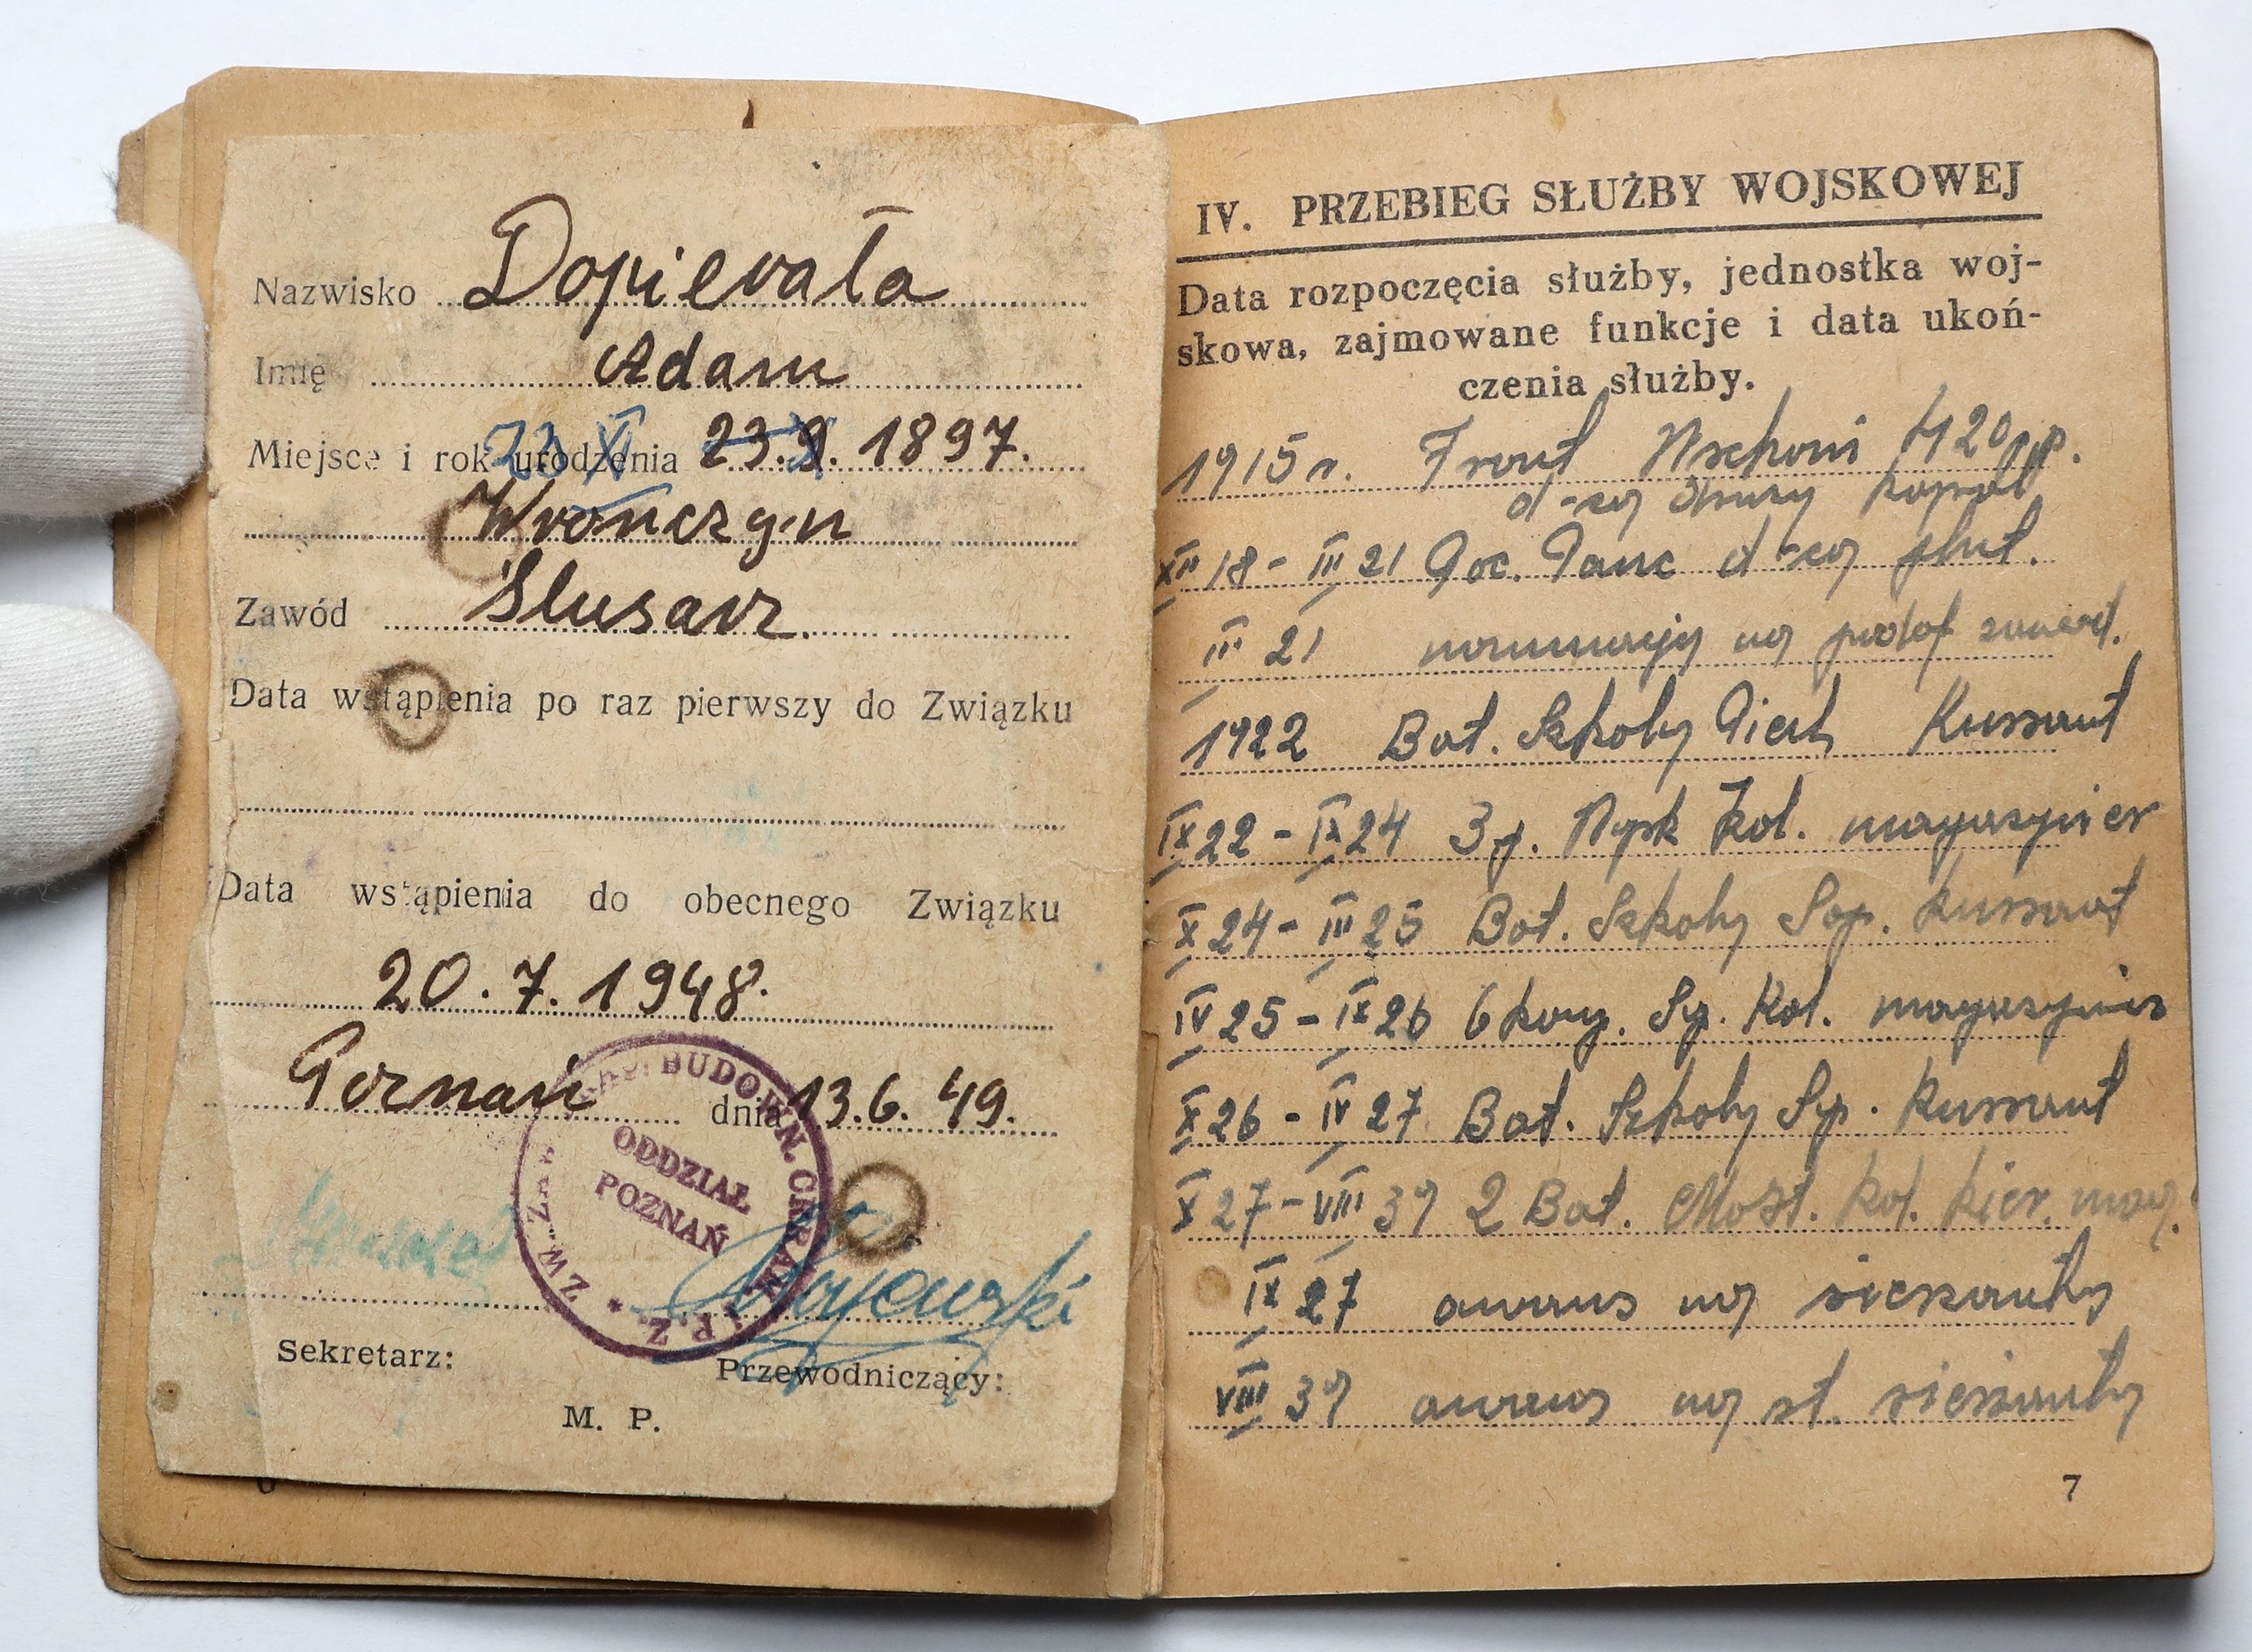 Nazwisko Dopierała
Imię Adam
Miejsce i rok urodzenia 23.9. 1897.
23 XI
Wrończyn
Zawód Ślusarz.
Data wstąpienia po raz pierwszy do Związku
Data wstąpienia do obecnego Związku
20.7.1948.
Poznań dnia 13.6.49.
BUDOWN. CERAM.
ODDZIAŁ
POZNAŃ
Sekretarz:
Przewodniczący:
M. P.
IV. PRZEBIEG SŁUŻBY WOJSKOWEJ
Data rozpoczęcia służby, jednostka woj-
skowa, zajmowane funkcje i data ukoń-
czenia służby.
1915 r. Front Wschoni 420 pp.
d-ca druży kapral
XII 18 - III 21 Poc. Panc d-ca plut.
III 21 nominacja na podof zawod.
1922 Bat. Szkoły Piech Kursant
IX 22 - IX 24 3 p. Wojsk Kol. magazynier
X 24 - III 25 Bat. Szkoły Sap. Kursant
IV 25 - IX 26 6 komp. Sap. Kol. magazynier
X 26 - IV 27 Bat. Szkoły Sap. Kursant
X 27 - VIII 39 2 Bat. Most. Kol. kier. mag.
IX 27 awans na sierżanta
VIII 39 awans na st. sierżanta
7